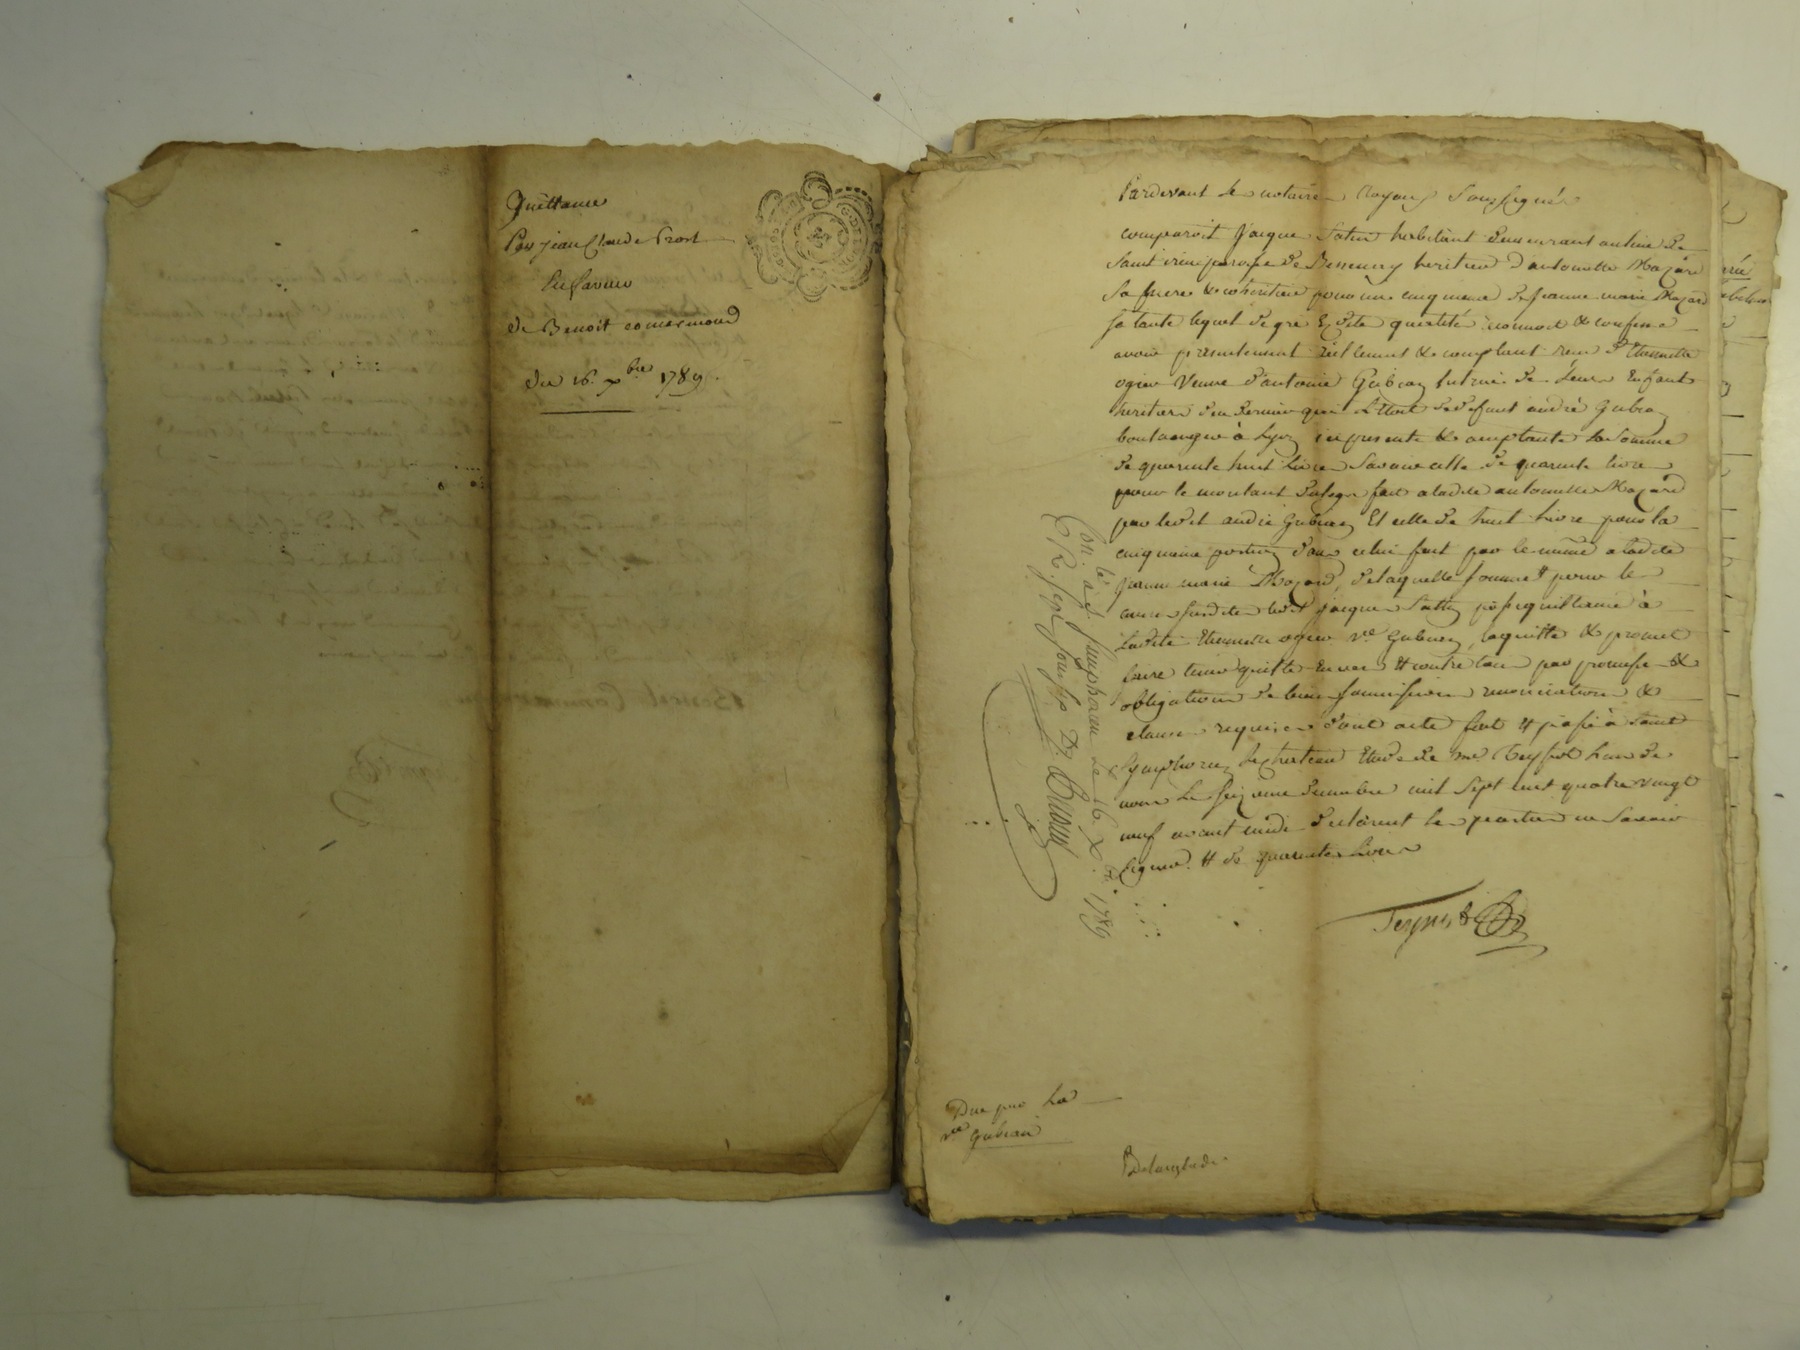 Quittance
Par jean Claude Prost
En faveur
de Benoit comarmond
du 16. xbre 1789.
Pardevant le notaire Royaux soussigné
comparoit jacque habitant demeurant au lieu de
saint parroisse de heritier d'antoinette Mazard
sa & cohéritier pour un cinquieme de jeanne marie Mazard
sa tante lequel de gré Esdite qualité reconnoit & confesse
avoir presentement réellement & comptant reçu d'Etiennette
ogier Veuve d'antoine Gubian tutrice de leurs Enfants
heritiers d'un dernier qui L'étoit de defunt andré Gubian
boulanger à Lyon icy presente & acceptante La somme
de quarente huit Livres savoir celle de quarente livres
pour le montant du legs fait a ladite antoinette Mazard
par ledit andré Gubian Et celle de huit livres pour la
cinquieme portion d'un celui fait par le même a ladite
jeanne marie Mazard, de laquelle somme # pour les
causes susdites ledit jacque passe quittance à
Ladite Etiennette ogier ve Gubian, la quitte & promet
faire tenir quitte envers & contre tous par promesse &
obligation de biens soumissions renonciations &
clauses requises dont acte fait & passé à saint
Symphorien le chateau Etude de me Teyssot L'un de
nous le seizieme decembre mil sept cent quatre vingt
neuf avant midi declarent les parties ne savoir
signer. # de quarente Livres
Con. lé à st simphorien Le 16. Xbre. 1789
R. sept sous six Ds
Due par La
ve Gubian
Delanglade